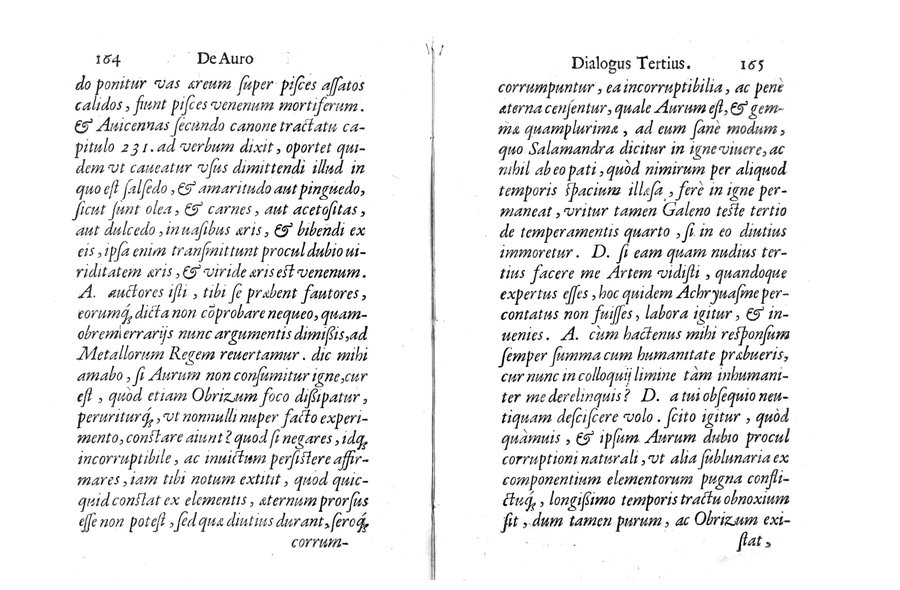 164 De Auro
do ponitur vas æreum ſuper piſces aſſatos
calidos, fiunt piſces venenum mortiferum.
& Auicennas ſecundo canone tractatu ca-
pitulo 231. ad verbum dixit, oportet qui-
dem vt caueatur vſus dimittendi illud in
quo eſt ſalſedo, & amaritudo aut pinguedo,
ſicut ſunt olea, & carnes, aut acetoſitas,
aut dulcedo, in uaſibus æris, & bibendi ex
eis, ipſa enim tranſmittunt procul dubio ui-
riditatem æris, & viride æris est venenum.
A. auctores iſti, tibi ſe præbent fautores,
eorumq́; dicta non cōprobare nequeo, quam-
obrem errarijs nunc argumentis dimiſſis, ad
Metallorum Regem reuertamur. dic mihi
amabo, ſi Aurum non conſumitur igne, cur
eſt, quòd etiam Obrizum foco diſſipatur,
peruriturq́;, vt nonnulli nuper facto experi-
mento, conſtare aiunt? quod ſi negares, idq́;
incorruptibile, ac inuictum perſiſtere affir-
mares, iam tibi notum extitit, quod quic-
quid conſtat ex elementis, æternum prorſus
eſſe non poteſt, ſed quæ diutius durant, ſeroq́;
corrum-
Dialogus Tertius. 165
corrumpuntur, ea incorruptibilia, ac penè
æterna cenſentur, quale Aurum eſt, & gem-
mæ quamplurimæ, ad eum ſanè modum,
quo Salamandra dicitur in igne viuere, ac
nihil ab eo pati, quòd nimirum per aliquod
temporis ſpacium illæſa, ferè in igne per-
maneat, vritur tamen Galeno teſte tertio
de temperamentis quarto, ſi in eo diutius
immoretur. D. ſi eam quam nudius ter-
tius facere me Artem vidiſti, quandoque
expertus eſſes, hoc quidem Achryuaſme per-
contatus non fuiſſes, labora igitur, & in-
uenies. A. cùm hactenus mihi reſponſum
ſemper ſumma cum humanitate præbueris,
cur nunc in colloquij limine tàm inhumani-
ter me derelinquis? D. a tui obſequio neu-
tiquam deſciſcere volo. ſcito igitur, quòd
quàmuis, & ipſum Aurum dubio procul
corruptioni naturali, vt alia ſublunaria ex
componentium elementorum pugna confli-
ctuq́;, longiſſimo temporis tractu obnoxium
ſit, dum tamen purum, ac Obrizum exi-
ſtat,